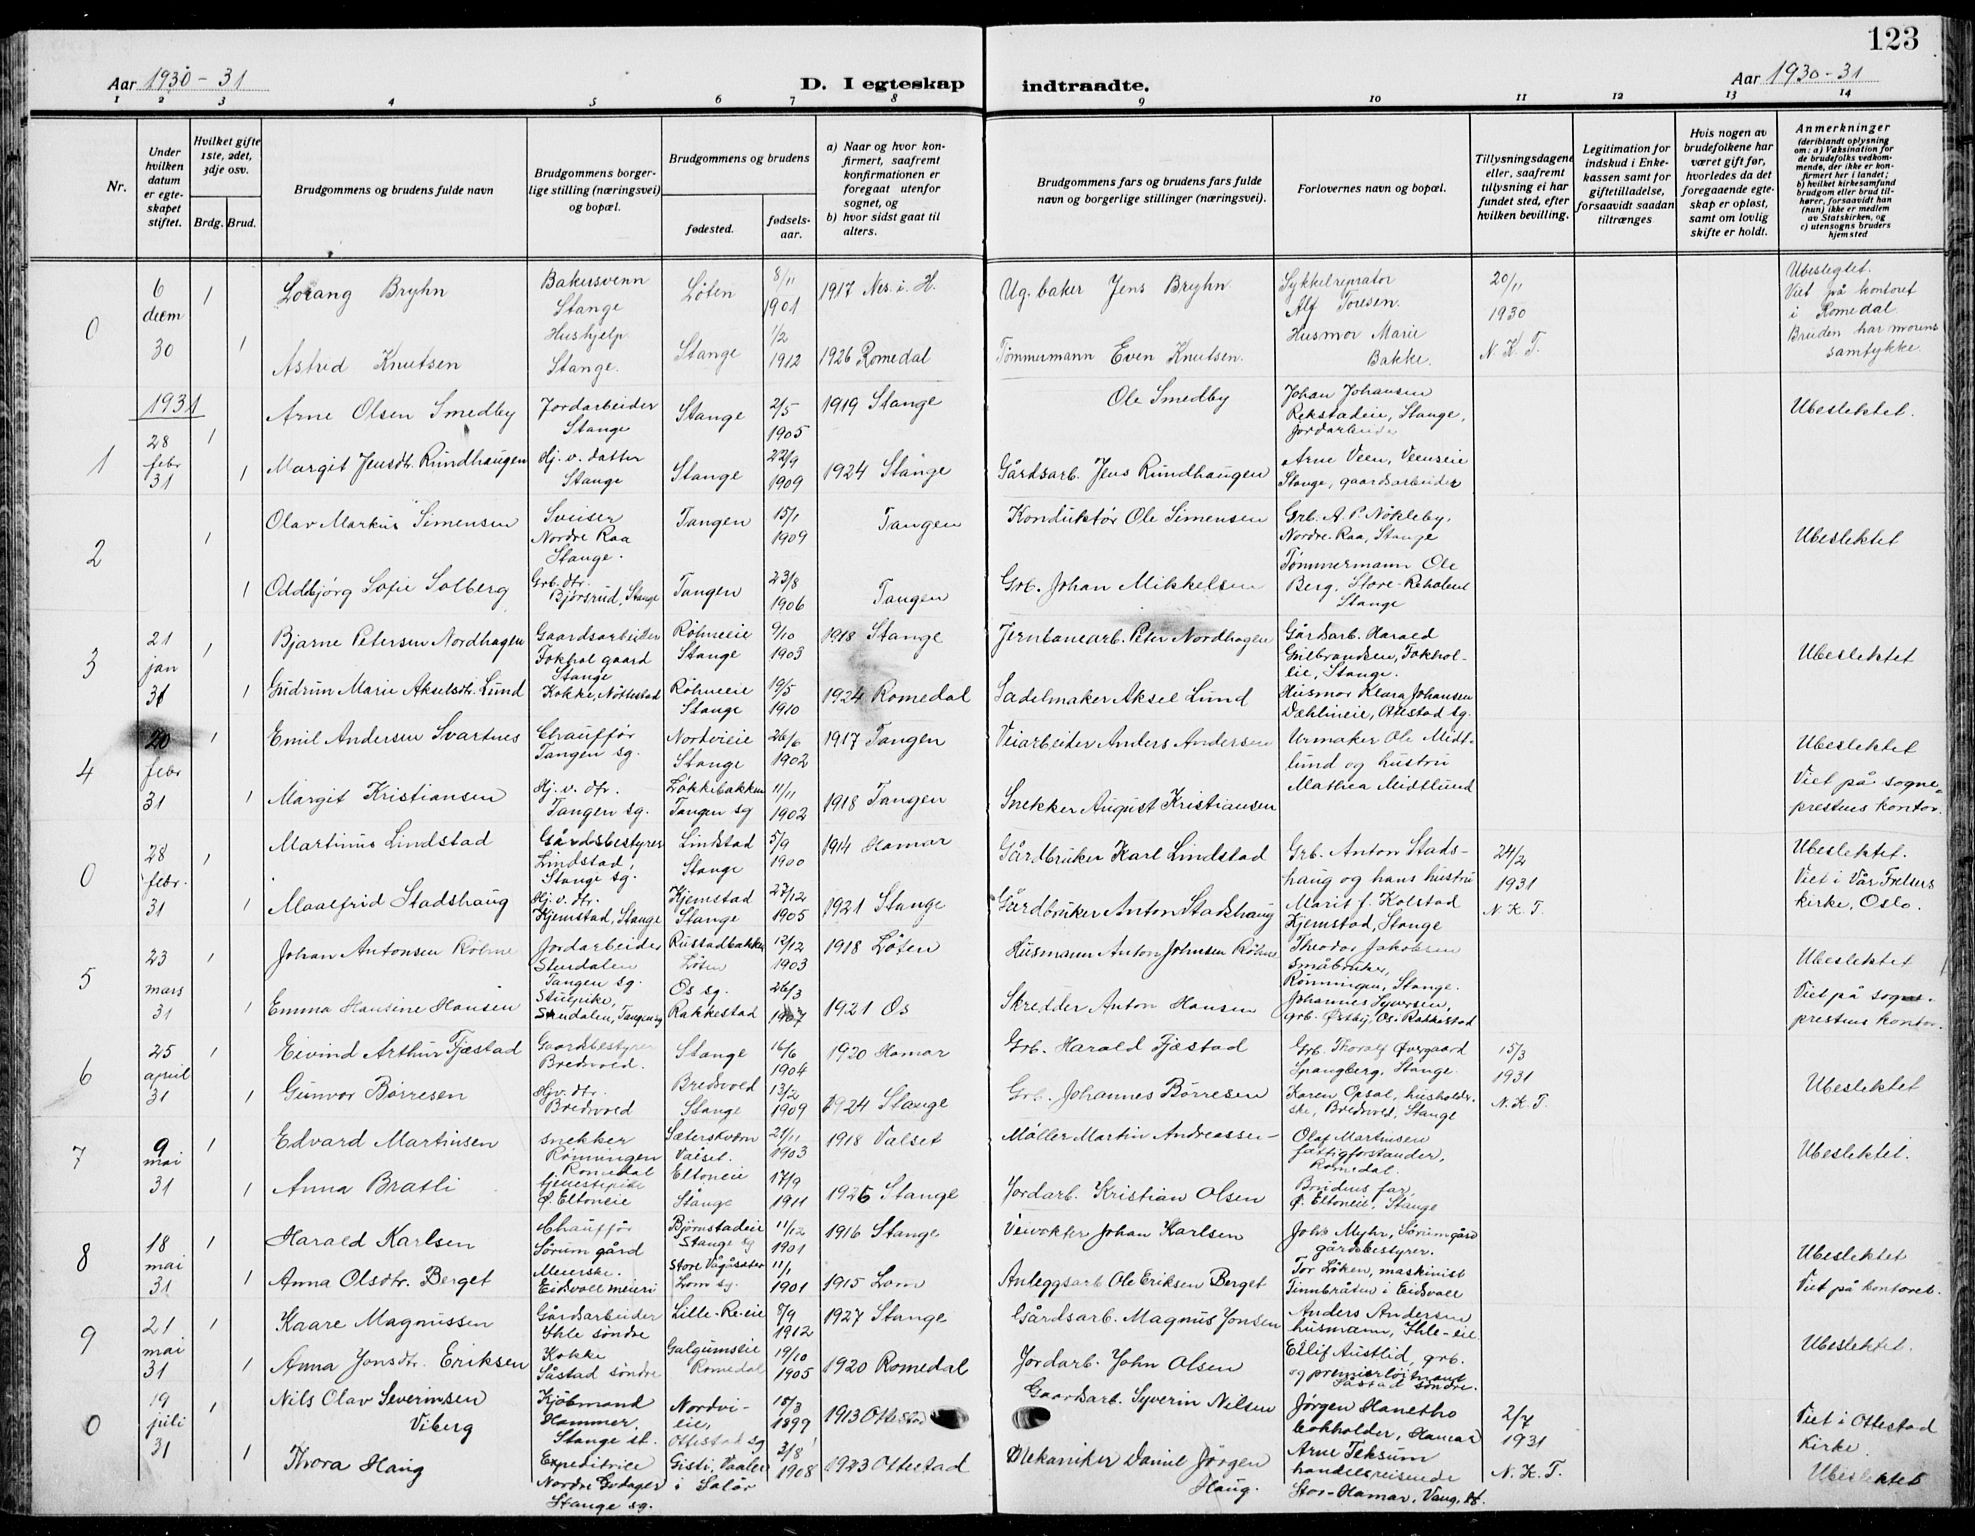 123
Aar 1930-31
D. I egteskap
indtraadte.
Aar 1930-31
1 2 3 4 5 6 7 8 9 10 11 12 13 14
Nr.
Under hvilken datum er egteskapet stiftet.
Hvilket gifte 1ste, 2det, 3dje osv.
Brdg. Brud.
Brudgommens og brudens fulde navn
Brudgommens borgerlige stilling (næringsvei) og bopæl.
Brudgommens og brudens
fødested.
fødselsaar.
a) Naar og hvor konfirmert, saafremt konfirmationen er foregaat utenfor sognet, og
b) hvor sidst gaat til alters.
Brudgommens fars og brudens fars fulde navn og borgerlige stillinger (næringsvei).
Forlovernes navn og bopæl.
Tillysningsdagene eller, saafremt tillysning ei har fundet sted, efter hvilken bevilling.
Legitimation for indskud i Enkekassen samt for giftetilladelse, forsaavidt saadan tiltrænges
Hvis nogen av brudefolkene har været gift før, hvorledes da det foregaaende egteskap er opløst, samt om lovlig skifte er holdt.
Anmerkninger
(deriblandt oplysning om: a) Vaksination for de brudefolks vedkommende, der ikke er konfirmert her i landet; b) hvilket kirkesamfund brudgom eller brud tilhører, forsaavidt han (hun) ikke er medlem av Statskirken, og c) utensogns bruders hjemsted
0 6 decm 30 1 Lorang Bryhn Bakersvenn Stange Løten 8/11 1901 1917 Nes. i. H. Ug. baker Jens Bryhn Sykkelreprator Alf Toresen. 20/11 1930 Ubeslegtet. Viet på kontoret i Romedal.
1 Astrid Knutsen Hushjelp Stange. Stange 1/2 1912 1926 Romedal Tømmermann Even Knutsen. Husmor Marie Bakke. N. K. T. Bruden har morens samtykke.
1931
1 28 febr 31 1 Arne Olsen Smedby Jordarbeider Stange Stange 2/5 1905 1919 Stange Ole Smedby Johan Johansen Rekstadeie, Stange, Jordarbeider Ubeslektet.
1 Margit Jensdtr. Rundhaugen Hj. v. datter Stange Stange 22/9 1909 1924 Stange Gårdsarb. Jens Rundhaugen Arne Veen, Veenseie Stange, gaardsarbeider
2 1 Olav Markus Simensen Sveiser Nordre Raa Stange. Tangen 15/1 1909 Tangen Konduktør Ole Simensen Grb. A. P. Nökleby, Nordre-Raa, Stange Ubeslektet
1 Oddbjörg Sofie Solberg Grb. dtr. Bjørsrud, Stange Tangen 23/8 1906 Tangen Grb. Johan Mikkelsen Tømmermann Ole Berg, Store- Stange
3 21 jan 31 1 Bjarne Petersen Nordhagen Gaardsarbeider Fokhol gaard Stange Röhneeie Stange 9/10 1903 1918 Stange Jernbanearb. Peter Nordhagen Gårdsarb. Harald Gulbrandsen, Fokholeie, Stange. Ubeslektet
1 Gudrun Marie Akselsdtr. Lund Kokke, Nøttestad Röhneeie Stange 19/5 1910 1924 Romedal Sadelmaker Aksel Lund Husmor Klara Johansen Dæhlineie, Ottestad sg.
4 20 febr 31 1 Emil Andersen Svartnes Chauffør Tangen sg. Nordvieie Stange 26/6 1902 1917 Tangen Veiarbeider Anders Andersen Urmaker Ole Midtlund og hustru Mathea Midtlund Ubeslektet
1 Margit Kristiansen Hj. v. dtr. Tangen sg. Løkkebakken Tangen sg 11/11 1902 1918 Tangen Snekker August Kristiansen Viet på sogneprestens kontor.
0 28 febr. 31 1 Martinus Lindstad Gårdsbestyrer Lindstad, Stange sg. Lindstad Stange 5/9 1900 1914 Hamar Gårdbruker Karl Lindstad Grb. Anton Stadshaug og hans hustru 24/2 1931 Ubeslektet.
1 Maalfrid Stadshaug Hj. v. dtr. Hjemstad, Stange Hjemstad Stange 27/12 1905 1921 Stange Gårdbruker Anton Stadshaug Marit f. Kolstad Hjemstad, Stange N. K. T. Viet i Vår Frelsers kirke, Oslo.
5 23 mars 31 1 Johan Antonsen Röhne Jordarbeider Stendalen Tangen sg. Rustadbakken Løten 12/12 1903 1918 Løten Husmann Anton Johnsen Röhne Theodor Jakobsen småbruker, Rönningen, Stange. Ubeslektet
1 Emma Hansine Hansen Stuepike, Stendalen, Tangen sg Os sg. Rakkestad 26/3 1907 1921 Os Skredder Anton Hansen Johannes Syversen, grb. Østby, Os i Rakkestad Viet på sogneprestens kontor.
6 25 april 31 1 Eivind Arthur Fjæstad Gaardsbestyrer Bredvold. Stange 16/6 1904 1920 Hamar Grb. Harald Fjæstad Grb. Thoralf Øvergaard Spangberg, Stange. 15/3 1931
1 Gunvor Börresen Hjv. dtr. Bredvold Bredvold Stange 13/2 1909 1924 Stange Grb. Johannes Börresen Karen Opsal, husholderske, Bredvold, Stange N. K. T. Ubeslektet
7 9 mai 31 1 Edvard Martinsen snekker Rønningen Romedal Sæterskvern Valset. 21/11 1903 1918 Valset Møller Martin Andreassen Olaf Martinsen fattigforstander, Romedal. Ubeslektet.
1 Anna Bratli tjenestepike Ø. Eltoneie Eltoneie Stange 17/9 1911 1926 Stange Jordarb. Kristian Olsen Brudens far, Ø. Eltoneie, Stange
8 18 mai 31 1 Harald Karlsen Chauffør Sörum gård Bjørnstadeie Stange sg 11/12 1901 1916 Stange Veivokter Johan Karlsen Johs Myhr, Sörum gård gårdsbestyrer. Ubeslektet
1 Anna Olsdtr. Berget Meierske. Eidsvoll meieri Store Vågåsæter Lom sg. 11/1 1901 1915 Lom Anleggsarb Ole Eriksen Berget Tor Löken, maskinist Finnbråten i Eidsvoll Viet på kontoret.
9 21 mai 31 1 Kaare Magnussen Gårdsarbeider Ihle söndre Lille-Reieie 8/9 1912 1927 Stange Gårdsarb. Magnus Jonsen Anders Andersen husmann, Ihle-eie Ubeslektet.
1 Anna Jonsdtr. Eriksen Kokke Såstad söndre Galgumseie Romedal 19/10 1905 1920 Romedal Jordarb. John Olsen Eilif Austlid, grb. og premierløitnant Såstad söndre.
0 19 juli 31 1 Nils Olav Severinsen Viberg Kjøbmand Hammer, Stange st. Nordvieie, Ottestad sg 18/3 1899 1913 Ottestad Gaardsarb. Syverin Nilsen Jørgen Hanetho bokholder, Hamar 2/7 1931 Viet i Ottestad kirke.
1 Thora Haug Expeditrice Nordre Gudager Stange sg. Gisti, Vaaler i Solør 3/8 1908 1923 Ottestad Mekaniker Daniel Jørgen Haug. Arne Teksum handelsreisende Stor-Hamar, Vang, H. N. K. T. Ubeslektet